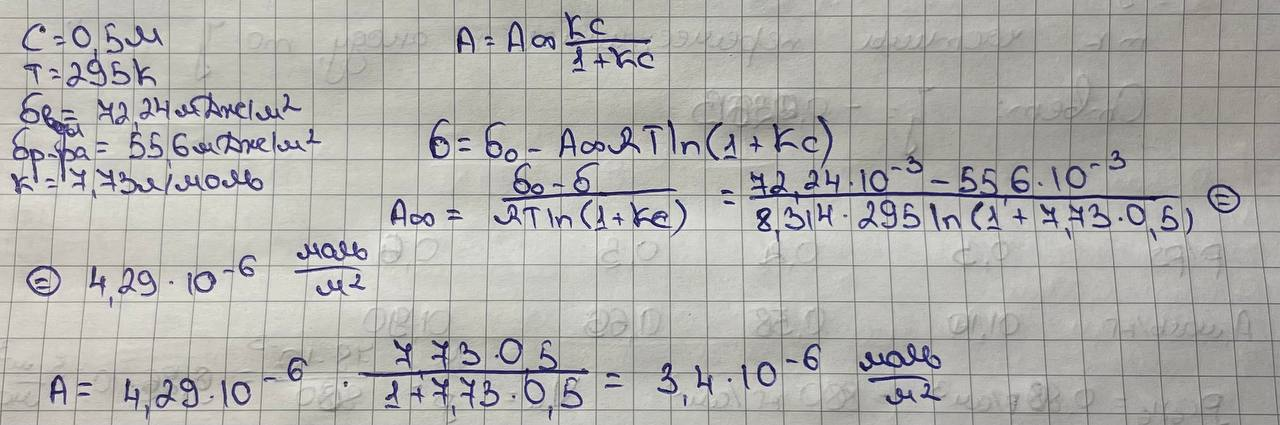 C = 0,5м
T = 295К
σводы = 72,24мДж/м²
σр-ра = 55,6мДж/м²
К = 7,73л/моль
A = A∞ KC/(1+KC)
σ = σ₀ - A∞RTln(1+KC)
A∞ = (σ₀-σ)/(RTln(1+KC)) = (72,24·10⁻³ - 55,6·10⁻³)/(8,314·295 ln(1+7,73·0,5)) =
= 4,29·10⁻⁶ моль/м²
A = 4,29·10⁻⁶ · (7,73·0,5)/(1+7,73·0,5) = 3,4·10⁻⁶ моль/м²